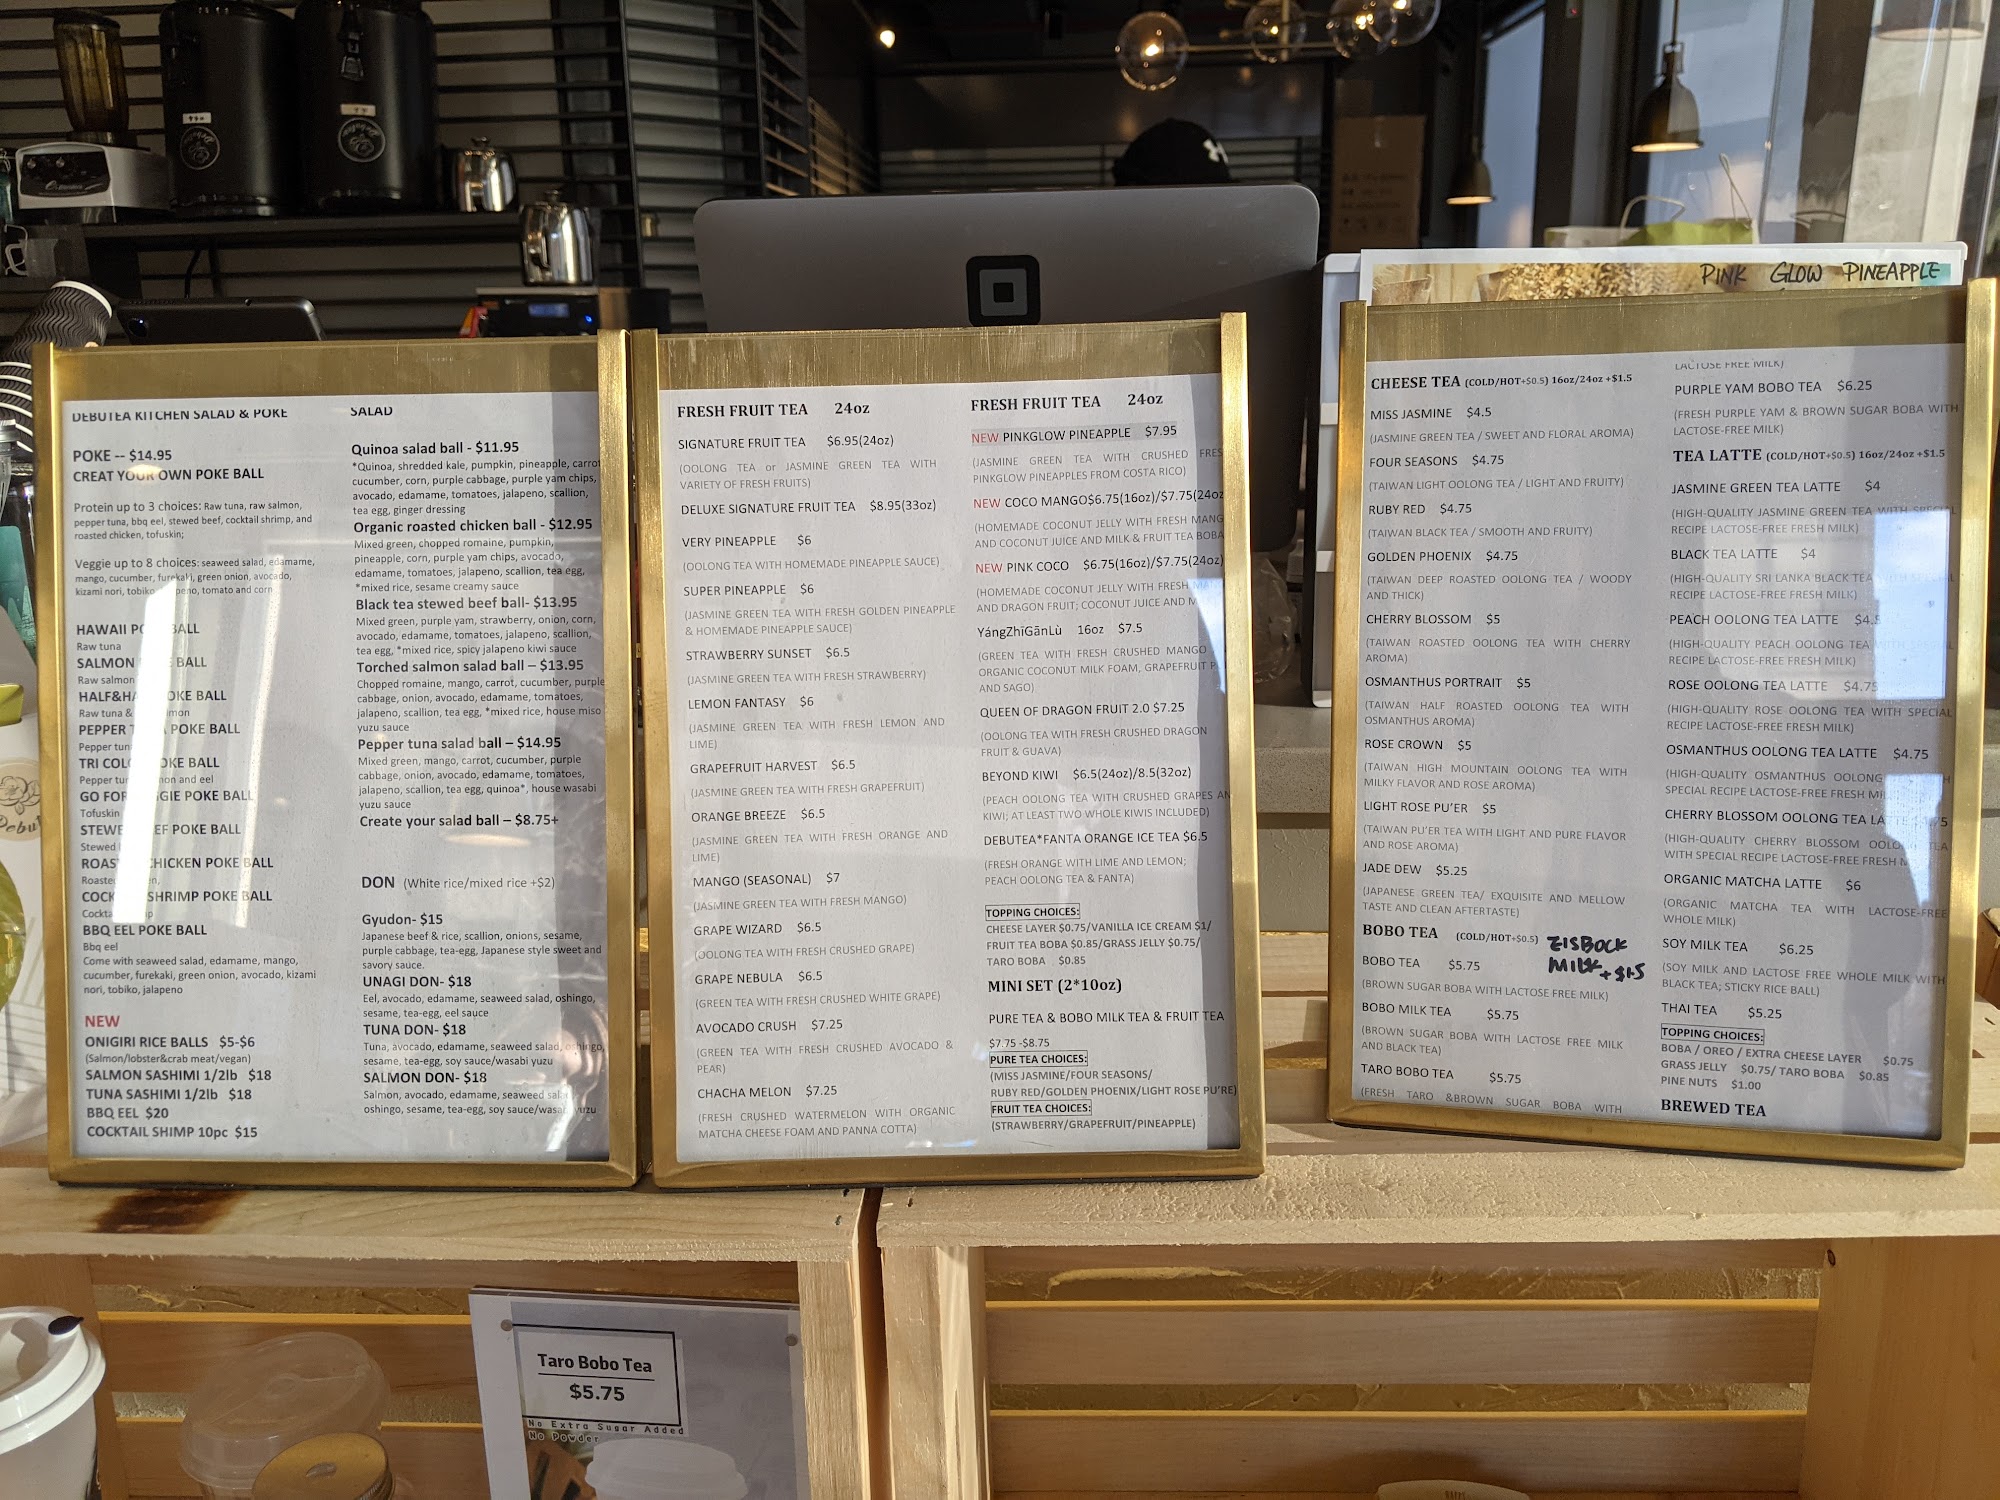 PINK GLOW PINEAPPLE
DEBUTEA KITCHEN SALAD & POKE
POKE -- $14.95
CREAT YOUR OWN POKE BALL
Protein up to 3 choices: Raw tuna, raw salmon,
pepper tuna, bbq eel, stewed beef, cocktail shrimp, and
roasted chicken, tofuskin;
Veggie up to 8 choices: seaweed salad, edamame,
mango, cucumber, furekaki, green onion, avocado,
kizami nori, tobiko, tomato and corn
HAWAII BALL
Raw tuna
SALMON BALL
Raw salmon
HALF&H OKE BALL
Raw tuna &
PEPPER POKE BALL
Pepper tun
TRI COL OKE BALL
Pepper on and eel
GO FOR GGIE POKE BALL
Tofuskin
STEWE EF POKE BALL
Stewed
ROAS CHICKEN POKE BALL
Roaste
COCK SHRIMP POKE BALL
Cockta
BBQ EEL POKE BALL
Bbq eel
Come with seaweed salad, edamame, mango,
cucumber, furekaki, green onion, avocado, kizami
nori, tobiko, jalapeno
NEW
ONIGIRI RICE BALLS $5-$6
(Salmon/lobster&crab meat/vegan)
SALMON SASHIMI 1/2lb $18
TUNA SASHIMI 1/2lb $18
BBQ EEL $20
COCKTAIL SHIMP 10pc $15
SALAD
Quinoa salad ball - $11.95
*Quinoa, shredded kale, pumpkin, pineapple, carrot
cucumber, corn, purple cabbage, purple yam chips,
avocado, edamame, tomatoes, jalapeno, scallion,
tea egg, ginger dressing
Organic roasted chicken ball - $12.95
Mixed green, chopped romaine, pumpkin,
pineapple, corn, purple yam chips, avocado,
edamame, tomatoes, jalapeno, scallion, tea egg,
*mixed rice, sesame creamy sauce
Black tea stewed beef ball- $13.95
Mixed green, purple yam, strawberry, onion, corn,
avocado, edamame, tomatoes, jalapeno, scallion,
tea egg, *mixed rice, spicy jalapeno kiwi sauce
Torched salmon salad ball – $13.95
Chopped romaine, mango, carrot, cucumber, purple
cabbage, onion, avocado, edamame, tomatoes,
jalapeno, scallion, tea egg, *mixed rice, house miso
yuzu sauce
Pepper tuna salad ball – $14.95
Mixed green, mango, carrot, cucumber, purple
cabbage, onion, avocado, edamame, tomatoes,
jalapeno, scallion, tea egg, quinoa*, house wasabi
yuzu sauce
Create your salad ball – $8.75+
DON (White rice/mixed rice +$2)
Gyudon- $15
Japanese beef & rice, scallion, onions, sesame,
purple cabbage, tea-egg, Japanese style sweet and
savory sauce.
UNAGI DON- $18
Eel, avocado, edamame, seaweed salad, oshingo,
sesame, tea-egg, eel sauce
TUNA DON- $18
Tuna, avocado, edamame, seaweed salad, oshingo,
sesame, tea-egg, soy sauce/wasabi yuzu
SALMON DON- $18
Salmon, avocado, edamame, seaweed salad,
oshingo, sesame, tea-egg, soy sauce/wasabi yuzu
FRESH FRUIT TEA 24oz
SIGNATURE FRUIT TEA $6.95(24oz)
(OOLONG TEA or JASMINE GREEN TEA WITH
VARIETY OF FRESH FRUITS)
DELUXE SIGNATURE FRUIT TEA $8.95(33oz)
VERY PINEAPPLE $6
(OOLONG TEA WITH HOMEMADE PINEAPPLE SAUCE)
SUPER PINEAPPLE $6
(JASMINE GREEN TEA WITH FRESH GOLDEN PINEAPPLE
& HOMEMADE PINEAPPLE SAUCE)
STRAWBERRY SUNSET $6.5
(JASMINE GREEN TEA WITH FRESH STRAWBERRY)
LEMON FANTASY $6
(JASMINE GREEN TEA WITH FRESH LEMON AND
LIME)
GRAPEFRUIT HARVEST $6.5
(JASMINE GREEN TEA WITH FRESH GRAPEFRUIT)
ORANGE BREEZE $6.5
(JASMINE GREEN TEA WITH FRESH ORANGE AND
LIME)
MANGO (SEASONAL) $7
(JASMINE GREEN TEA WITH FRESH MANGO)
GRAPE WIZARD $6.5
(OOLONG TEA WITH FRESH CRUSHED GRAPE)
GRAPE NEBULA $6.5
(GREEN TEA WITH FRESH CRUSHED WHITE GRAPE)
AVOCADO CRUSH $7.25
(GREEN TEA WITH FRESH CRUSHED AVOCADO &
PEAR)
CHACHA MELON $7.25
(FRESH CRUSHED WATERMELON WITH ORGANIC
MATCHA CHEESE FOAM AND PANNA COTTA)
FRESH FRUIT TEA 24oz
NEW PINKGLOW PINEAPPLE $7.95
(JASMINE GREEN TEA WITH CRUSHED FRES
PINKGLOW PINEAPPLES FROM COSTA RICO)
NEW COCO MANGO$6.75(16oz)/$7.75(24oz
(HOMEMADE COCONUT JELLY WITH FRESH MANG
AND COCONUT JUICE AND MILK & FRUIT TEA BOBA
NEW PINK COCO $6.75(16oz)/$7.75(24oz)
(HOMEMADE COCONUT JELLY WITH FRESH MANG
AND DRAGON FRUIT; COCONUT JUICE AND M
YángZhīGānLù 16oz $7.5
(GREEN TEA WITH FRESH CRUSHED MANGO
ORGANIC COCONUT MILK FOAM, GRAPEFRUIT P
AND SAGO)
QUEEN OF DRAGON FRUIT 2.0 $7.25
(OOLONG TEA WITH FRESH CRUSHED DRAGON
FRUIT & GUAVA)
BEYOND KIWI $6.5(24oz)/8.5(32oz)
(PEACH OOLONG TEA WITH CRUSHED GRAPES AN
KIWI; AT LEAST TWO WHOLE KIWIS INCLUDED)
DEBUTEA*FANTA ORANGE ICE TEA $6.5
(FRESH ORANGE WITH LIME AND LEMON;
PEACH OOLONG TEA & FANTA)
TOPPING CHOICES:
CHEESE LAYER $0.75/VANILLA ICE CREAM $1/
FRUIT TEA BOBA $0.85/GRASS JELLY $0.75/
TARO BOBA $0.85
MINI SET (2*10oz)
PURE TEA & BOBO MILK TEA & FRUIT TEA
$7.75 -$8.75
PURE TEA CHOICES:
(MISS JASMINE/FOUR SEASONS/
RUBY RED/GOLDEN PHOENIX/LIGHT ROSE PU'RE)
FRUIT TEA CHOICES:
(STRAWBERRY/GRAPEFRUIT/PINEAPPLE)
CHEESE TEA (COLD/HOT+$0.5) 16oz/24oz +$1.5
MISS JASMINE $4.5
(JASMINE GREEN TEA / SWEET AND FLORAL AROMA)
FOUR SEASONS $4.75
(TAIWAN LIGHT OOLONG TEA / LIGHT AND FRUITY)
RUBY RED $4.75
(TAIWAN BLACK TEA / SMOOTH AND FRUITY)
GOLDEN PHOENIX $4.75
(TAIWAN DEEP ROASTED OOLONG TEA / WOODY
AND THICK)
CHERRY BLOSSOM $5
(TAIWAN ROASTED OOLONG TEA WITH CHERRY
AROMA)
OSMANTHUS PORTRAIT $5
(TAIWAN HALF ROASTED OOLONG TEA WITH
OSMANTHUS AROMA)
ROSE CROWN $5
(TAIWAN HIGH MOUNTAIN OOLONG TEA WITH
MILKY FLAVOR AND ROSE AROMA)
LIGHT ROSE PU'ER $5
(TAIWAN PU'ER TEA WITH LIGHT AND PURE FLAVOR
AND ROSE AROMA)
JADE DEW $5.25
(JAPANESE GREEN TEA/ EXQUISITE AND MELLOW
TASTE AND CLEAN AFTERTASTE)
BOBO TEA (COLD/HOT+$0.5) ZISBOCK
MILK +$1.5
BOBO TEA $5.75
(BROWN SUGAR BOBA WITH LACTOSE FREE MILK)
BOBO MILK TEA $5.75
(BROWN SUGAR BOBA WITH LACTOSE FREE MILK
AND BLACK TEA)
TARO BOBO TEA $5.75
(FRESH TARO &BROWN SUGAR BOBA WITH
LACTOSE FREE MILK)
PURPLE YAM BOBO TEA $6.25
(FRESH PURPLE YAM & BROWN SUGAR BOBA WITH
LACTOSE-FREE MILK)
TEA LATTE (COLD/HOT+$0.5) 16oz/24oz +$1.5
JASMINE GREEN TEA LATTE $4
(HIGH-QUALITY JASMINE GREEN TEA WITH SPECIAL
RECIPE LACTOSE-FREE FRESH MILK)
BLACK TEA LATTE $4
(HIGH-QUALITY SRI LANKA BLACK TEA WITH SPECIAL
RECIPE LACTOSE-FREE FRESH MILK)
PEACH OOLONG TEA LATTE $4.5
(HIGH-QUALITY PEACH OOLONG TEA WITH SPECIAL
RECIPE LACTOSE-FREE FRESH MILK)
ROSE OOLONG TEA LATTE $4.75
(HIGH-QUALITY ROSE OOLONG TEA WITH SPECIAL
RECIPE LACTOSE-FREE FRESH MILK)
OSMANTHUS OOLONG TEA LATTE $4.75
(HIGH-QUALITY OSMANTHUS OOLONG
SPECIAL RECIPE LACTOSE-FREE FRESH MI
CHERRY BLOSSOM OOLONG TEA LA
(HIGH-QUALITY CHERRY BLOSSOM OOLO
WITH SPECIAL RECIPE LACTOSE-FREE FRESH M
ORGANIC MATCHA LATTE $6
(ORGANIC MATCHA TEA WITH LACTOSE-FREE
WHOLE MILK)
SOY MILK TEA $6.25
(SOY MILK AND LACTOSE FREE WHOLE MILK WITH
BLACK TEA; STICKY RICE BALL)
THAI TEA $5.25
TOPPING CHOICES:
BOBA / OREO / EXTRA CHEESE LAYER $0.75
GRASS JELLY $0.75/ TARO BOBA $0.85
PINE NUTS $1.00
BREWED TEA
Taro Bobo Tea
$5.75
No Extra Sugar Added
No Powder